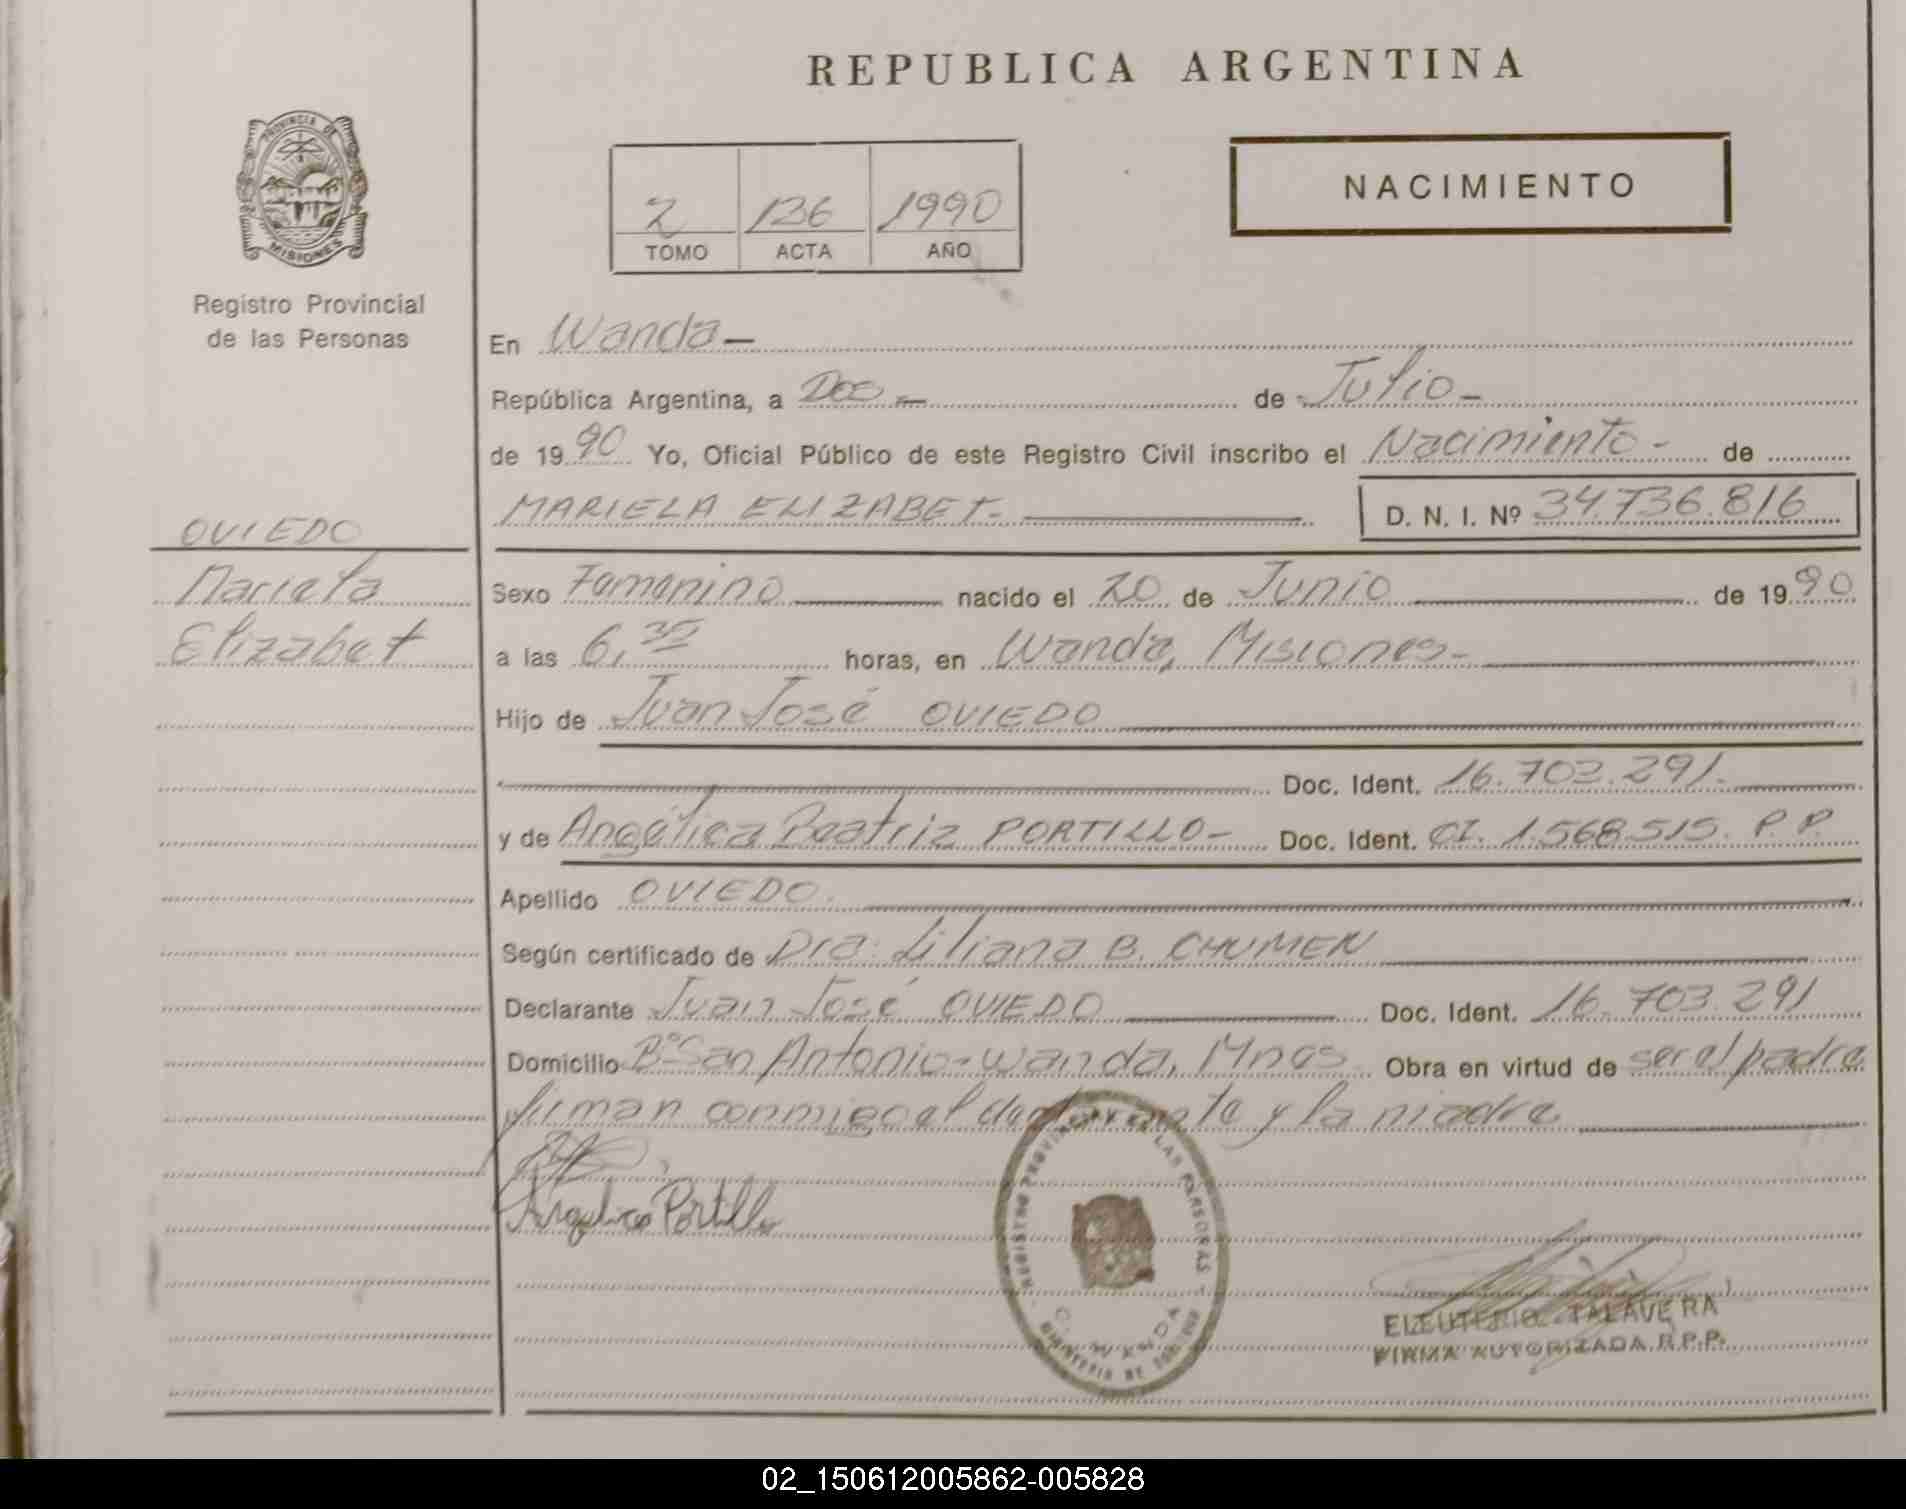 REPUBLICA ARGENTINA
PROVINCIA DE
MISIONES
Registro Provincial
de las Personas
2 136 1990
TOMO ACTA AÑO
NACIMIENTO
En Wanda -
República Argentina, a Dos - de Julio -
de 1990 Yo, Oficial Público de este Registro Civil inscribo el Nacimiento - de
MARIELA ELIZABET - D. N. I. Nº 34.736.816
OVIEDO
Mariela
Elizabet
Sexo Femenino nacido el 20 de Junio de 1990
a las 6,35 horas, en Wanda, Misiones -
Hijo de Juan José OVIEDO
Doc. Ident. 16.703.291.
y de Angélica Beatriz PORTILLO - Doc. Ident. CI. 1.568.515. P.P.
Apellido OVIEDO.
Según certificado de Dra. Liliana B. CHUMEN
Declarante Juan José OVIEDO Doc. Ident. 16.703.291
Domicilio Bº San Antonio - Wanda, Mnes Obra en virtud de ser el padre
firman conmigo el declarante y la madre
Angelica Portillo
REGISTRO PROVINCIAL DE LAS PERSONAS
WANDA
MINISTERIO DE
ELEUTERIO TALAVERA
FIRMA AUTORIZADA R.P.P.
02_150612005862-005828